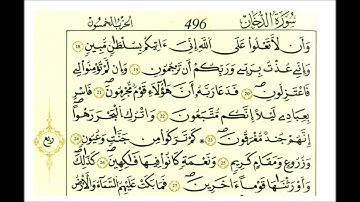 سُورَةُ الدُّخَانِ 496 الحِزْبُ الخَمْسُونَ
وَأَن لَّا تَعْلُوا۟ عَلَى اَللَّهِ إِنِّيَ ءَاتِيكُم بِسُلْطَٰنٍ مُّبِينٍ 18
وَإِنِّي عُذْتُ بِرَبِّي وَرَبِّكُمْ أَن تَرْجُمُونِ 19 وَإِن لَّمْ تُومِنُوا۟ لِي
فَاعْتَزِلُونِ 20 فَدَعَا رَبَّهُ أَنَّ هَٰؤُلَآءِ قَوْمٌ مُّجْرِمُونَ 21 فَاسْرِ
بِعِبَادِي لَيْلًا إِنَّكُم مُّتَّبَعُونَ 22 وَاتْرُكِ اِلْبَحْرَ رَهْوًا
إِنَّهُمْ جُندٌ مُّغْرَقُونَ 23 كَمْ تَرَكُوا۟ مِن جَنَّٰتٍ وَعُيُونٍ 24
وَزُرُوعٍ وَمَقَامٍ كَرِيمٍ 25 وَنَعْمَةٍ كَانُوا۟ فِيهَا فَٰكِهِينَ 26 كَذَٰلِكَ
وَأَوْرَثْنَٰهَا قَوْمًا ءَاخَرِينَ 27 فَمَا بَكَتْ عَلَيْهِمُ السَّمَآءُ وَالْأَرْضُ
ربع